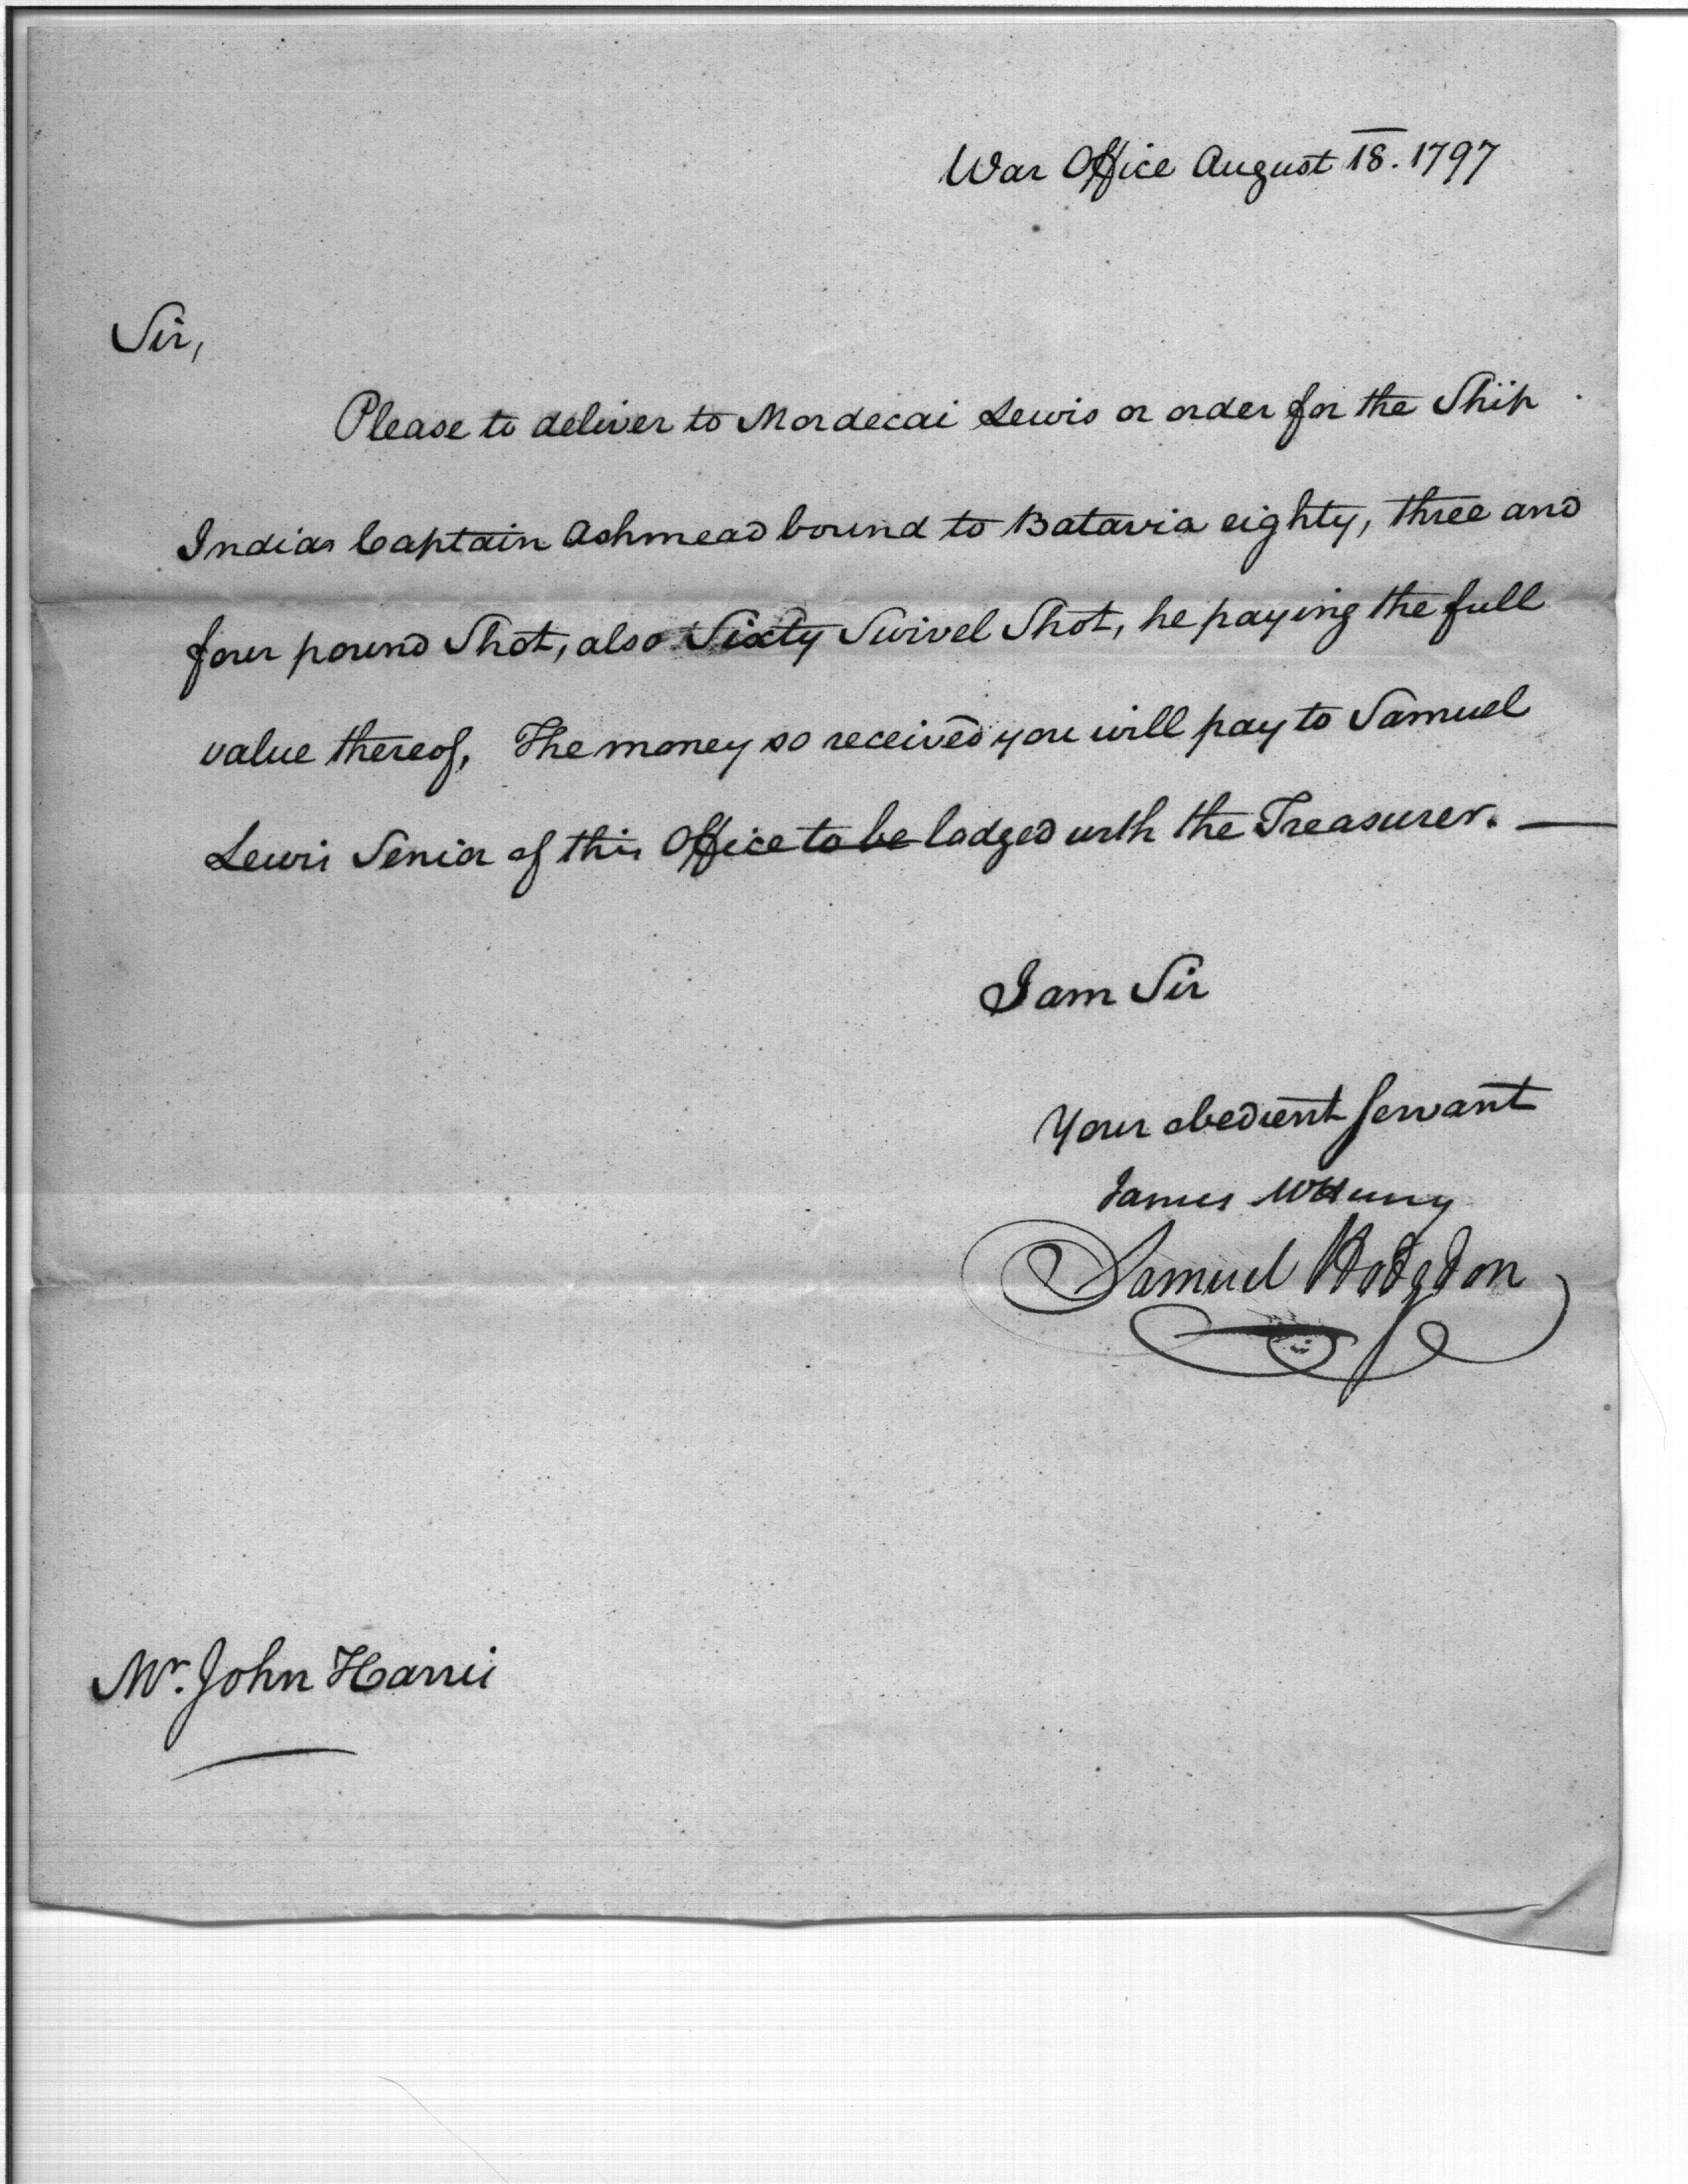 War Office August 18. 1797
Sir,
Please to deliver to Mordecai Lewis or order for the Ship
India Captain Ashmead bound to Batavia eighty, three and
four pound Shot, also Sixty Swivel Shot, he paying the full
value thereof, The money so received you will pay to Samuel
Lewis Senior of this Office to be lodged with the Treasurer. —
I am Sir
Your obedient servant
James McHenry
Samuel Hodgdon
Mr. John Harris